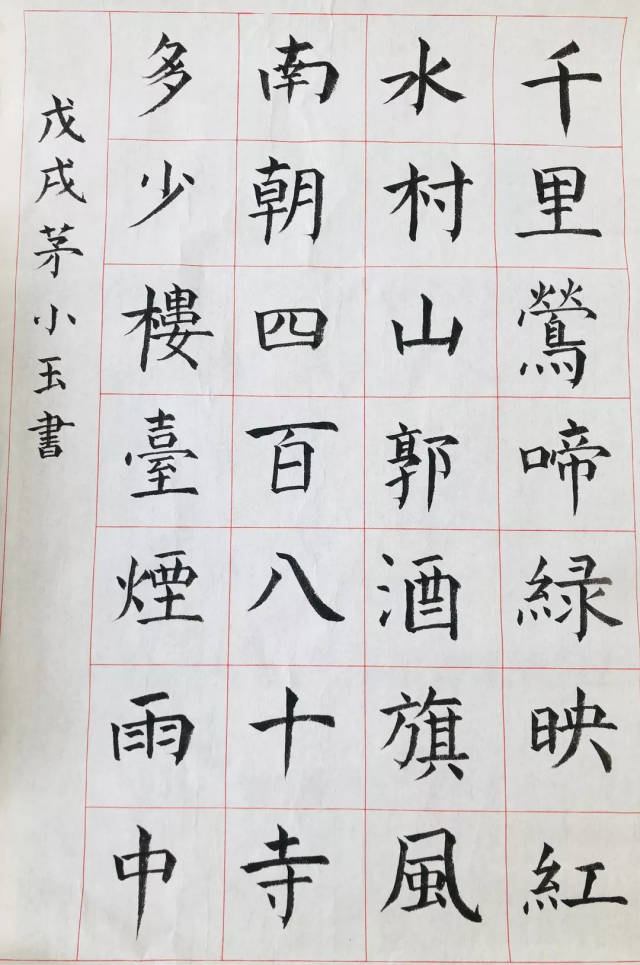 千里鶯啼緑映紅
水村山郭酒旗風
南朝四百八十寺
多少樓臺煙雨中
戊戌茅小玉書